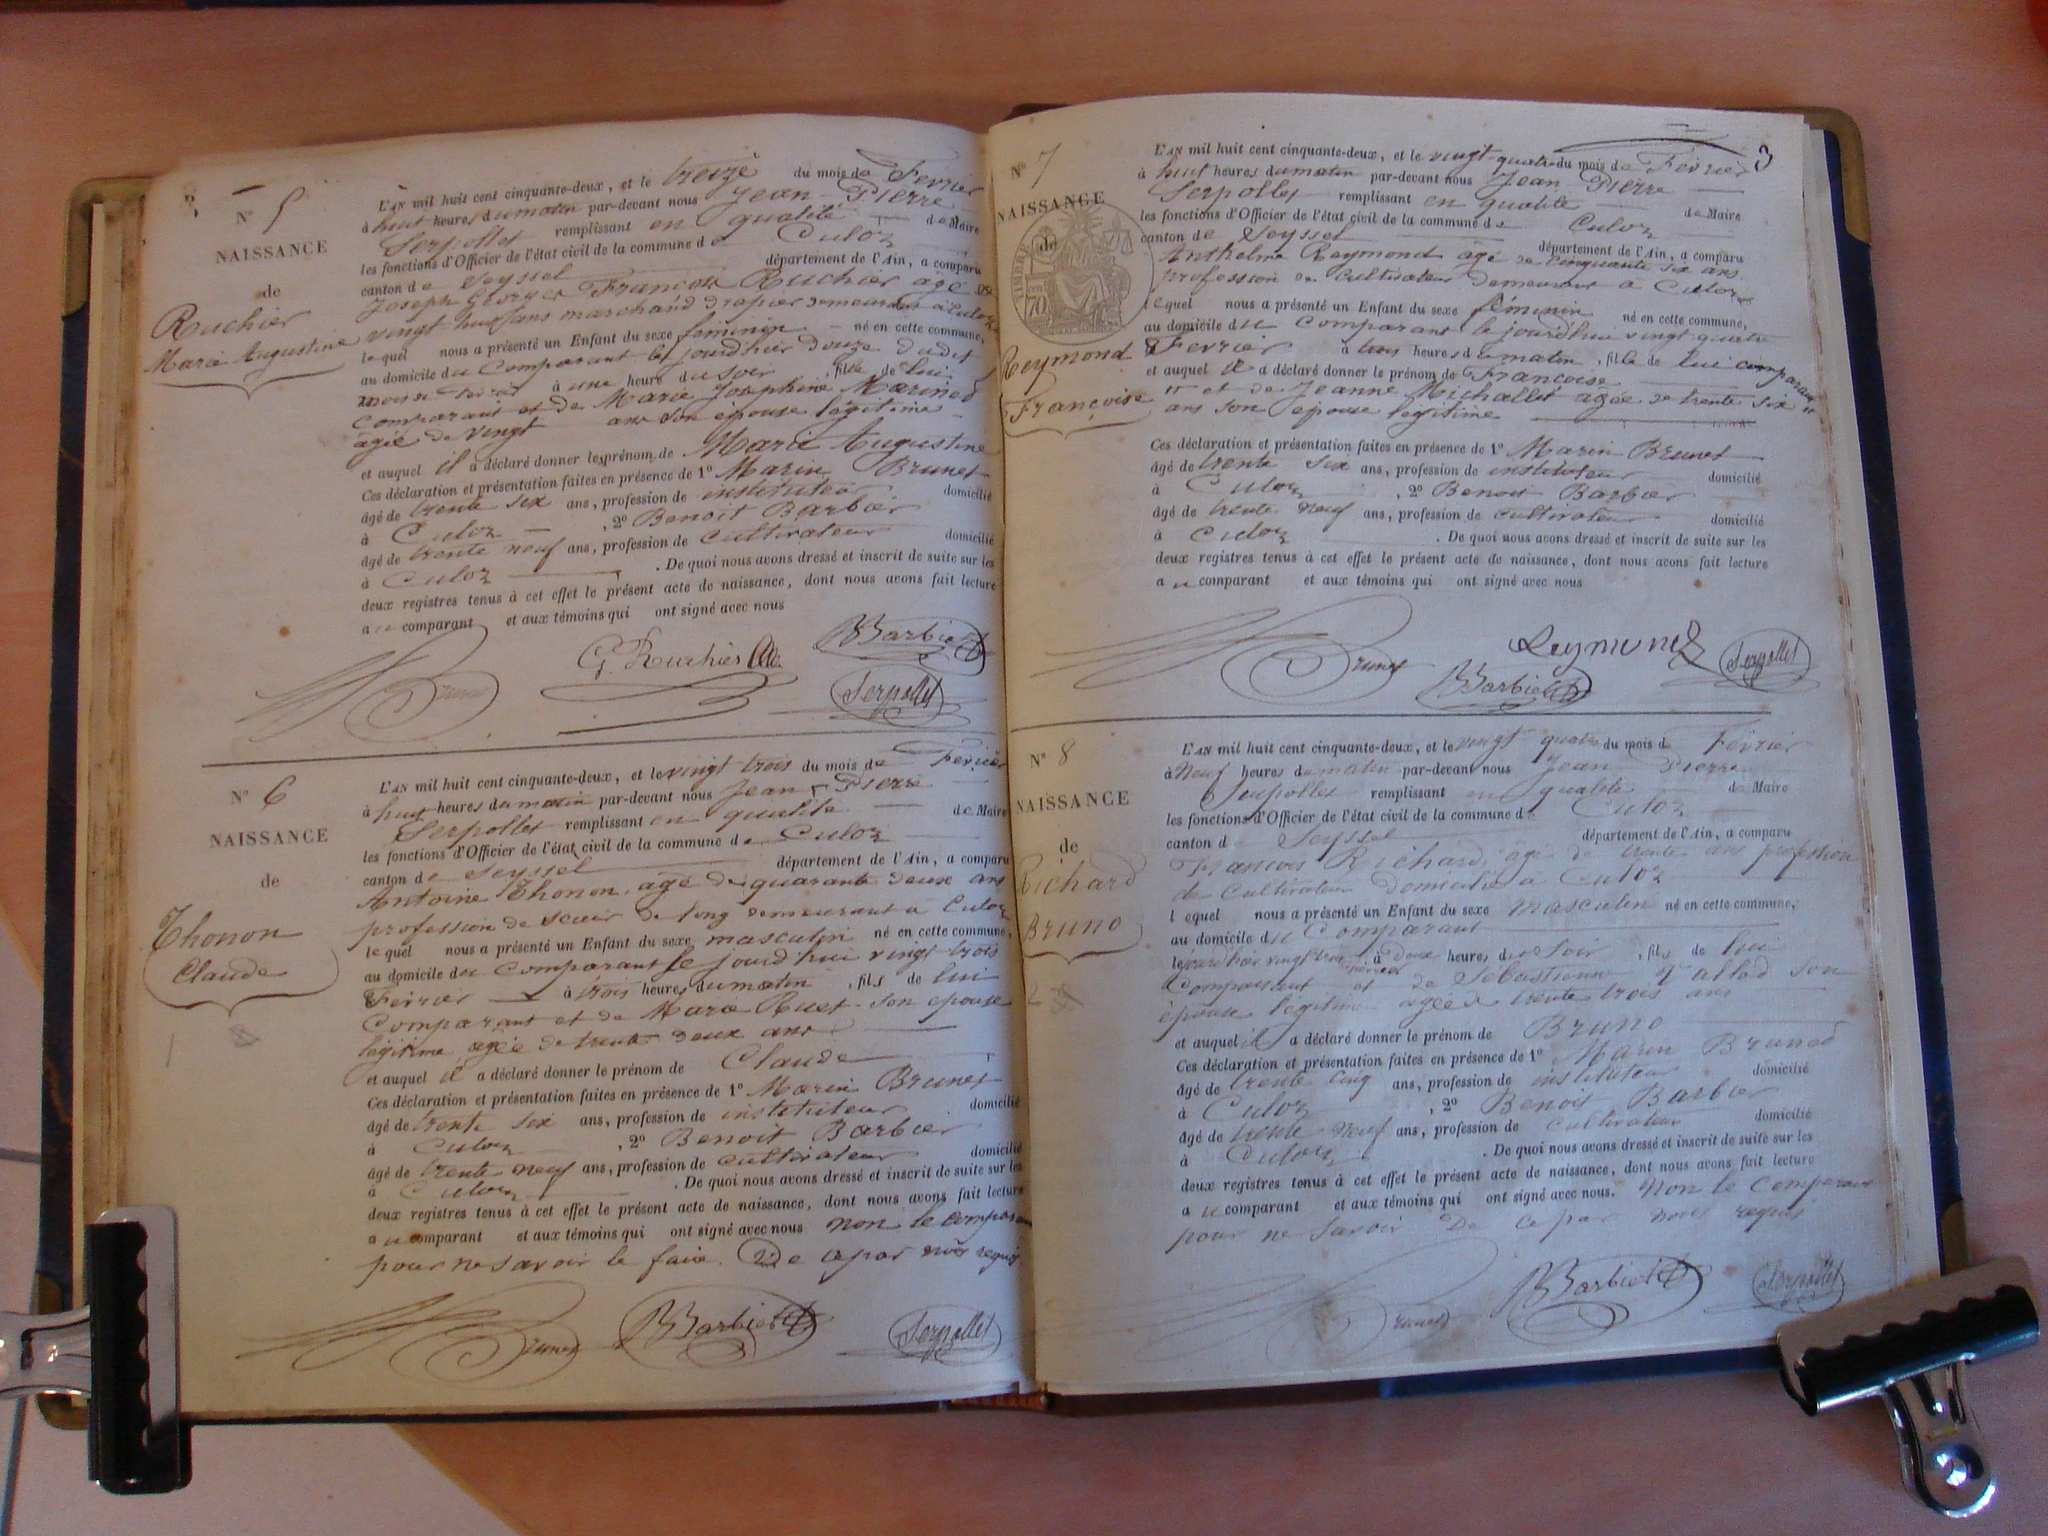 N° 5
NAISSANCE
de
Ruchier
Marie Augustine
L'AN mil huit cent cinquante-deux, et le treize du mois de Fevrier
à huit heures du matin par-devant nous Jean Pierre
Serpollet remplissant en qualité de Maire
les fonctions d'Officier de l'état civil de la commune de Culoz
canton de Seyssel département de l'Ain, a comparu
Joseph Georges François Ruchier âgé de
vingt huit ans marchand drapier demeurant à Culoz
le quel nous a présenté un Enfant du sexe feminin né en cette commune,
au domicile du Comparant le jourd'hier douze dudit
mois de à une heure du soir, fille de lui
comparant et de Marie Josephine
âgée de vingt ans son épouse légitime
et auquel il a déclaré donner le prénom de Marie Augustine
Ces déclaration et présentation faites en présence de 1° Marin Brunet
âgé de trente six ans, profession de instituteur domicilié
à Culoz, 2° Benoit Barbier
âgé de trente neuf ans, profession de cultivateur domicilié
à Culoz. De quoi nous avons dressé et inscrit de suite sur les
deux registres tenus à cet effet le présent acte de naissance, dont nous avons fait lecture
au comparant et aux témoins qui ont signé avec nous
Brunet G Ruchier BBarbier
Serpollet
N° 6
NAISSANCE
de
Thonon
Claude
L'AN mil huit cent cinquante-deux, et le vingt trois du mois de Fevrier
à huit heures du matin par-devant nous Jean Pierre
Serpollet remplissant en qualité de Maire
les fonctions d'Officier de l'état civil de la commune de Culoz
canton de Seyssel département de l'Ain, a comparu
Antoine Thonon, âgé de quarante deux ans
profession de scieur de long demeurant à Culoz
le quel nous a présenté un Enfant du sexe masculin né en cette commune,
au domicile du comparant le jourd'hui vingt trois
Fevrier à trois heures du matin, fils de lui
Comparant et de Marie Ruet son epouse
légitime agée de trente deux ans
et auquel il a déclaré donner le prénom de Claude
Ces déclaration et présentation faites en présence de 1° Marin Brunet
âgé de trente six ans, profession de instituteur domicilié
à Culoz, 2° Benoit Barbier
âgé de trente neuf ans, profession de cultivateur domicilié
à Culoz. De quoi nous avons dressé et inscrit de suite sur les
deux registres tenus à cet effet le présent acte de naissance, dont nous avons fait lecture
au comparant et aux témoins qui ont signé avec nous non le comparant
pour ne savoir le faire. De ce par nous requis
Brunet BBarbier Serpollet
3
N° 7
NAISSANCE
de
TIMBRE
70
Reymond
Françoise
L'AN mil huit cent cinquante-deux, et le vingt-quatre du mois de Fevrier
à huit heures du matin par-devant nous Jean Pierre
Serpollet remplissant en qualité de Maire
les fonctions d'Officier de l'état civil de la commune de Culoz
canton de Seyssel département de l'Ain, a comparu
Anthelme Reymond âgé de cinquante six ans
profession de cultivateur demeurant à Culoz
le quel nous a présenté un Enfant du sexe féminin né en cette commune,
au domicile du comparant le jourd'hui vingt quatre
Fevrier à trois heures du matin, fille de lui comparant
et auquel il a déclaré donner le prénom de Francoise
et de Jeanne Michallet agée de trente six
ans son epouse legitime
Ces déclaration et présentation faites en présence de 1° Marin Brunet
âgé de trente six ans, profession de instituteur domicilié
à Culoz, 2° Benoit Barbier
âgé de trente neuf ans, profession de cultivateur domicilié
à Culoz. De quoi nous avons dressé et inscrit de suite sur les
deux registres tenus à cet effet le présent acte de naissance, dont nous avons fait lecture
au comparant et aux témoins qui ont signé avec nous
Brunet Reymond Serpollet
BBarbier
N° 8
NAISSANCE
de
Richard
Bruno
L'AN mil huit cent cinquante-deux, et le vingt quatre du mois d Fevrier
à Neuf heures du matin par-devant nous Jean Pierre
Serpollet remplissant en qualité de Maire
les fonctions d'Officier de l'état civil de la commune de Culoz
canton d Seyssel département de l'Ain, a comparu
Francois Richard, âgé de trente ans profession
de cultivateur domicilié à Culoz
lequel nous a présenté un Enfant du sexe masculin né en cette commune,
au domicile du Comparant
le jourd'hier vingt trois fevrier à deux heures du soir, fils de lui
Comparant et de Sebastienne son
épouse légitime agée de trente trois ans
et auquel il a déclaré donner le prénom de Bruno
Ces déclaration et présentation faites en présence de 1° Marin Brunet
âgé de trente cinq ans, profession de instituteur domicilié
à Culoz, 2° Benoit Barbier
âgé de trente neuf ans, profession de cultivateur domicilié
à Culoz. De quoi nous avons dressé et inscrit de suite sur les
deux registres tenus à cet effet le présent acte de naissance, dont nous avons fait lecture
au comparant et aux témoins qui ont signé avec nous. Non le Comparant
pour ne savoir De ce par nous requis
Brunet BBarbier Serpollet